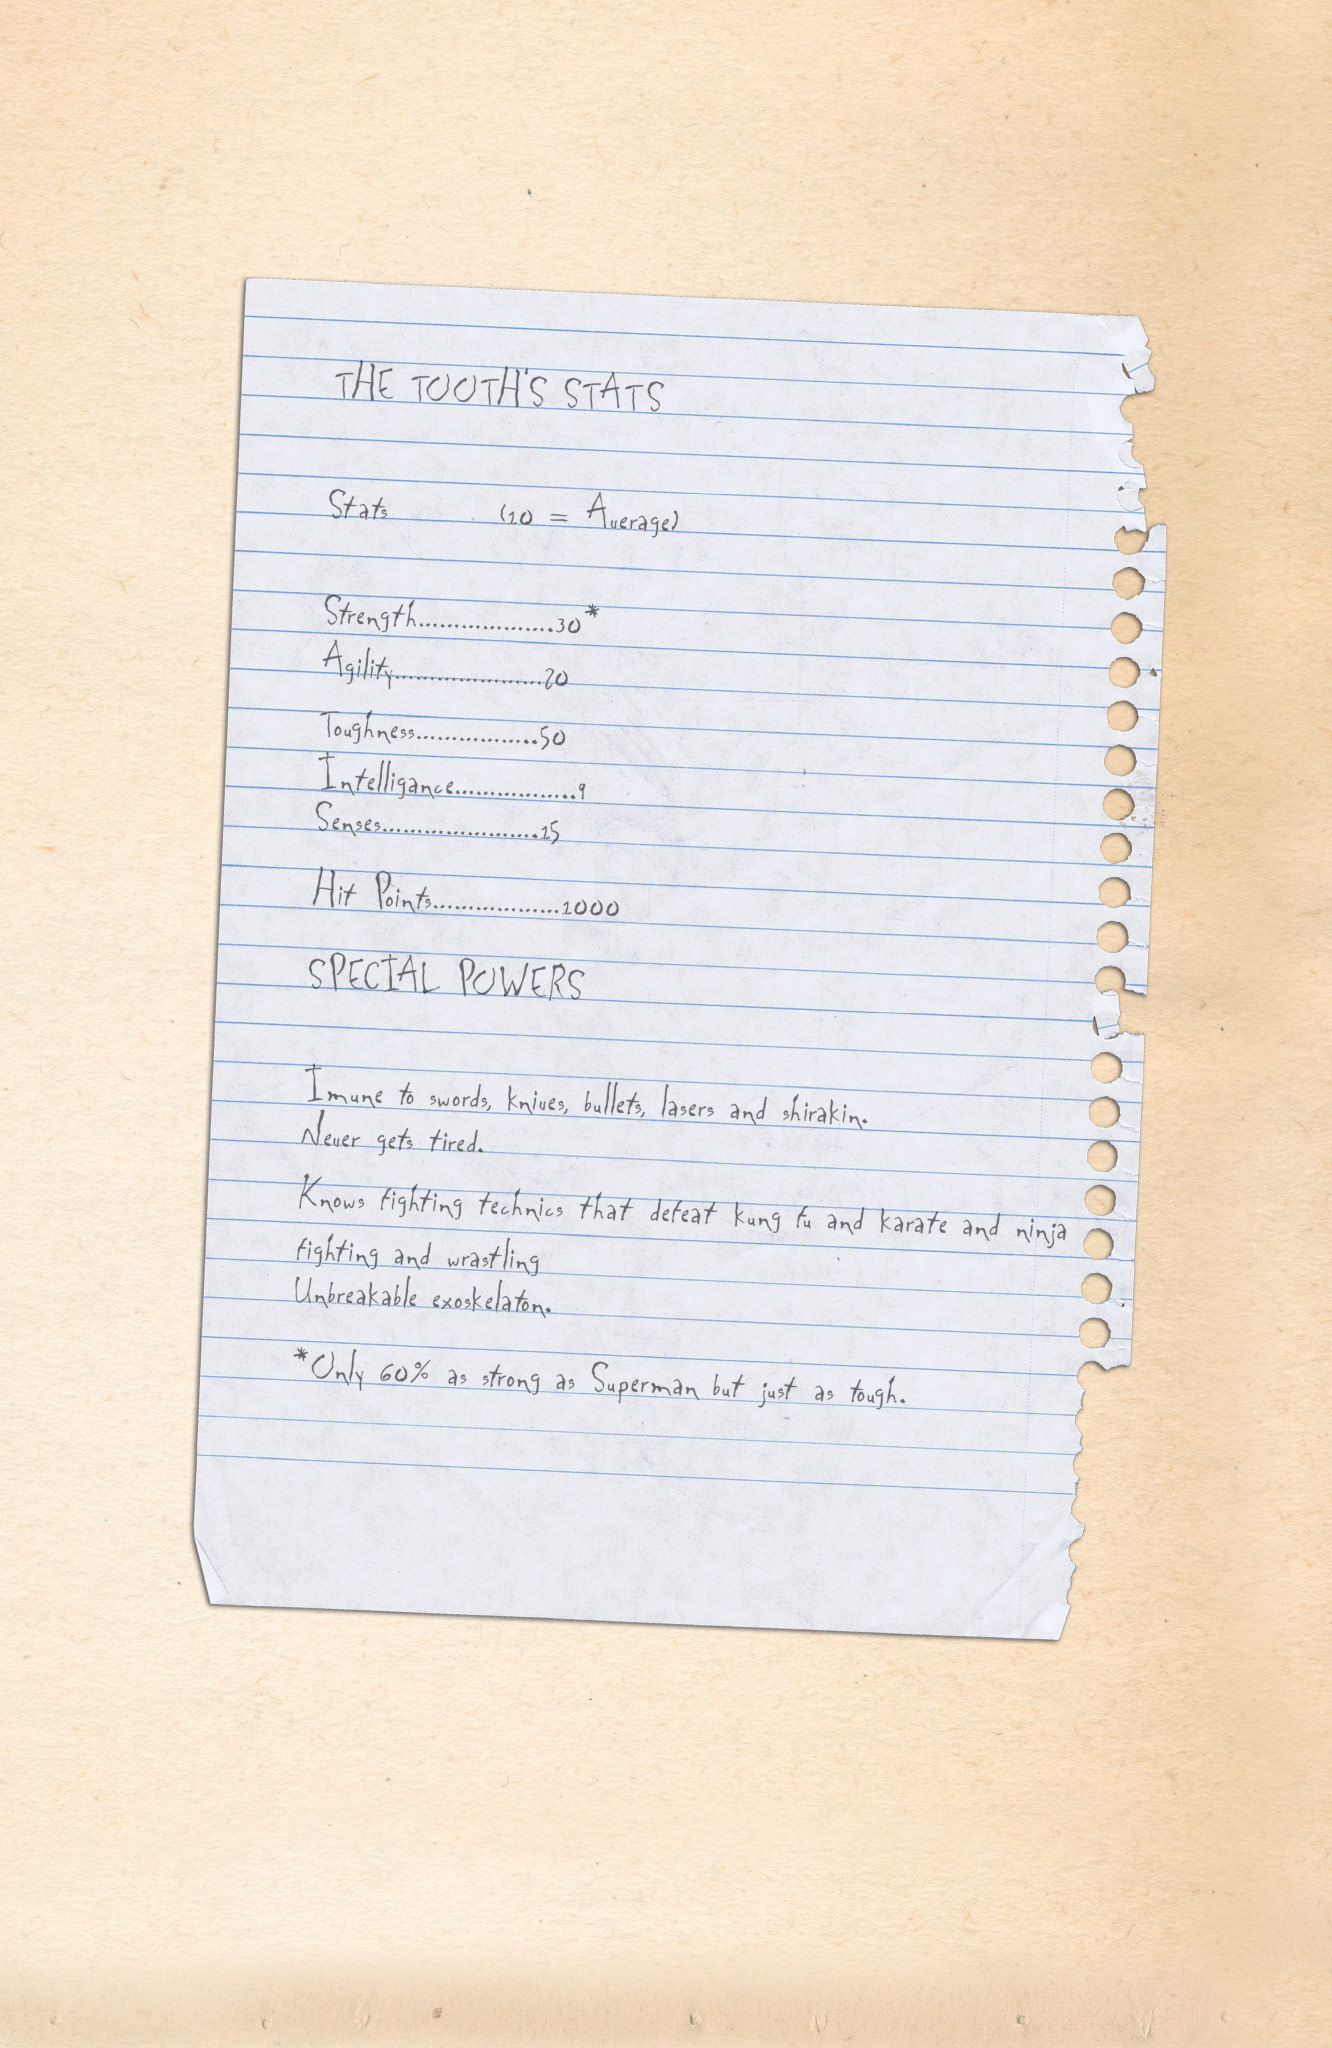 THE TOOTH'S STATS
Stats (10 = Average)
Strength...................30*
Agility.....................20
Toughness.................50
Intelligance.................9
Senses......................15
Hit Points..................1000
SPECIAL POWERS
Imune to swords, knives, bullets, lasers and shirakin.
Never gets tired.
Knows fighting technics that defeat kung fu and karate and ninja
fighting and wrastling
Unbreakable exoskelaton.
*Only 60% as strong as Superman but just as tough.